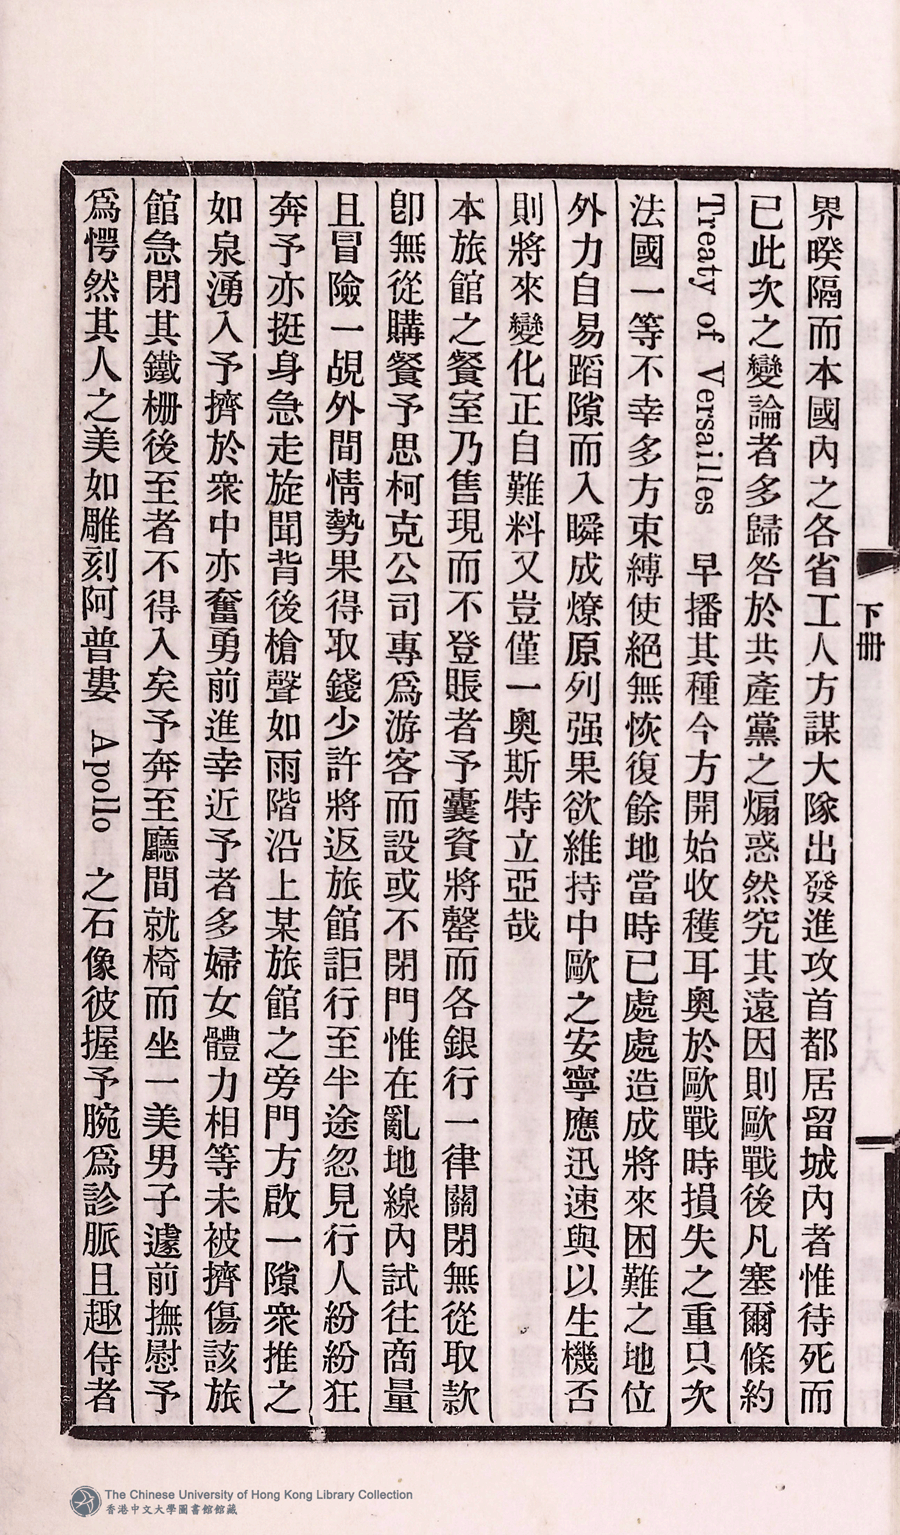 界暌隔而本國內之各省工人方謀大隊出發進攻首都居留城內者惟待死而
已此次之變論者多歸咎於共產黨之煽惑然究其遠因則歐戰後凡塞爾條約
Treaty of Versailles 早播其種今方開始收穫耳奧於歐戰時損失之重只次
法國一等不幸多方束縛使絕無恢復餘地當時已處處造成將來困難之地位
外力自易蹈隙而入瞬成燎原列强果欲維持中歐之安寧應迅速與以生機否
則將來變化正自難料又豈僅一奧斯特立亞哉
本旅館之餐室乃售現而不登賬者予囊資將罄而各銀行一律關閉無從取款
卽無從購餐予思柯克公司專爲游客而設或不閉門惟在亂地線內試往商量
且冒險一覘外間情勢果得取錢少許將返旅館詎行至半途忽見行人紛紛狂
奔予亦挺身急走旋聞背後槍聲如雨階沿上某旅館之旁門方啟一隙衆推之
如泉湧入予擠於衆中亦奮勇前進幸近予者多婦女體力相等未被擠傷該旅
館急閉其鐵柵後至者不得入矣予奔至廳間就椅而坐一美男子遽前撫慰予
爲愕然其人之美如雕刻阿普婁 Apollo 之石像彼握予腕爲診脈且趣侍者
下冊
The Chinese University of Hong Kong Library Collection
香港中文大學圖書館館藏